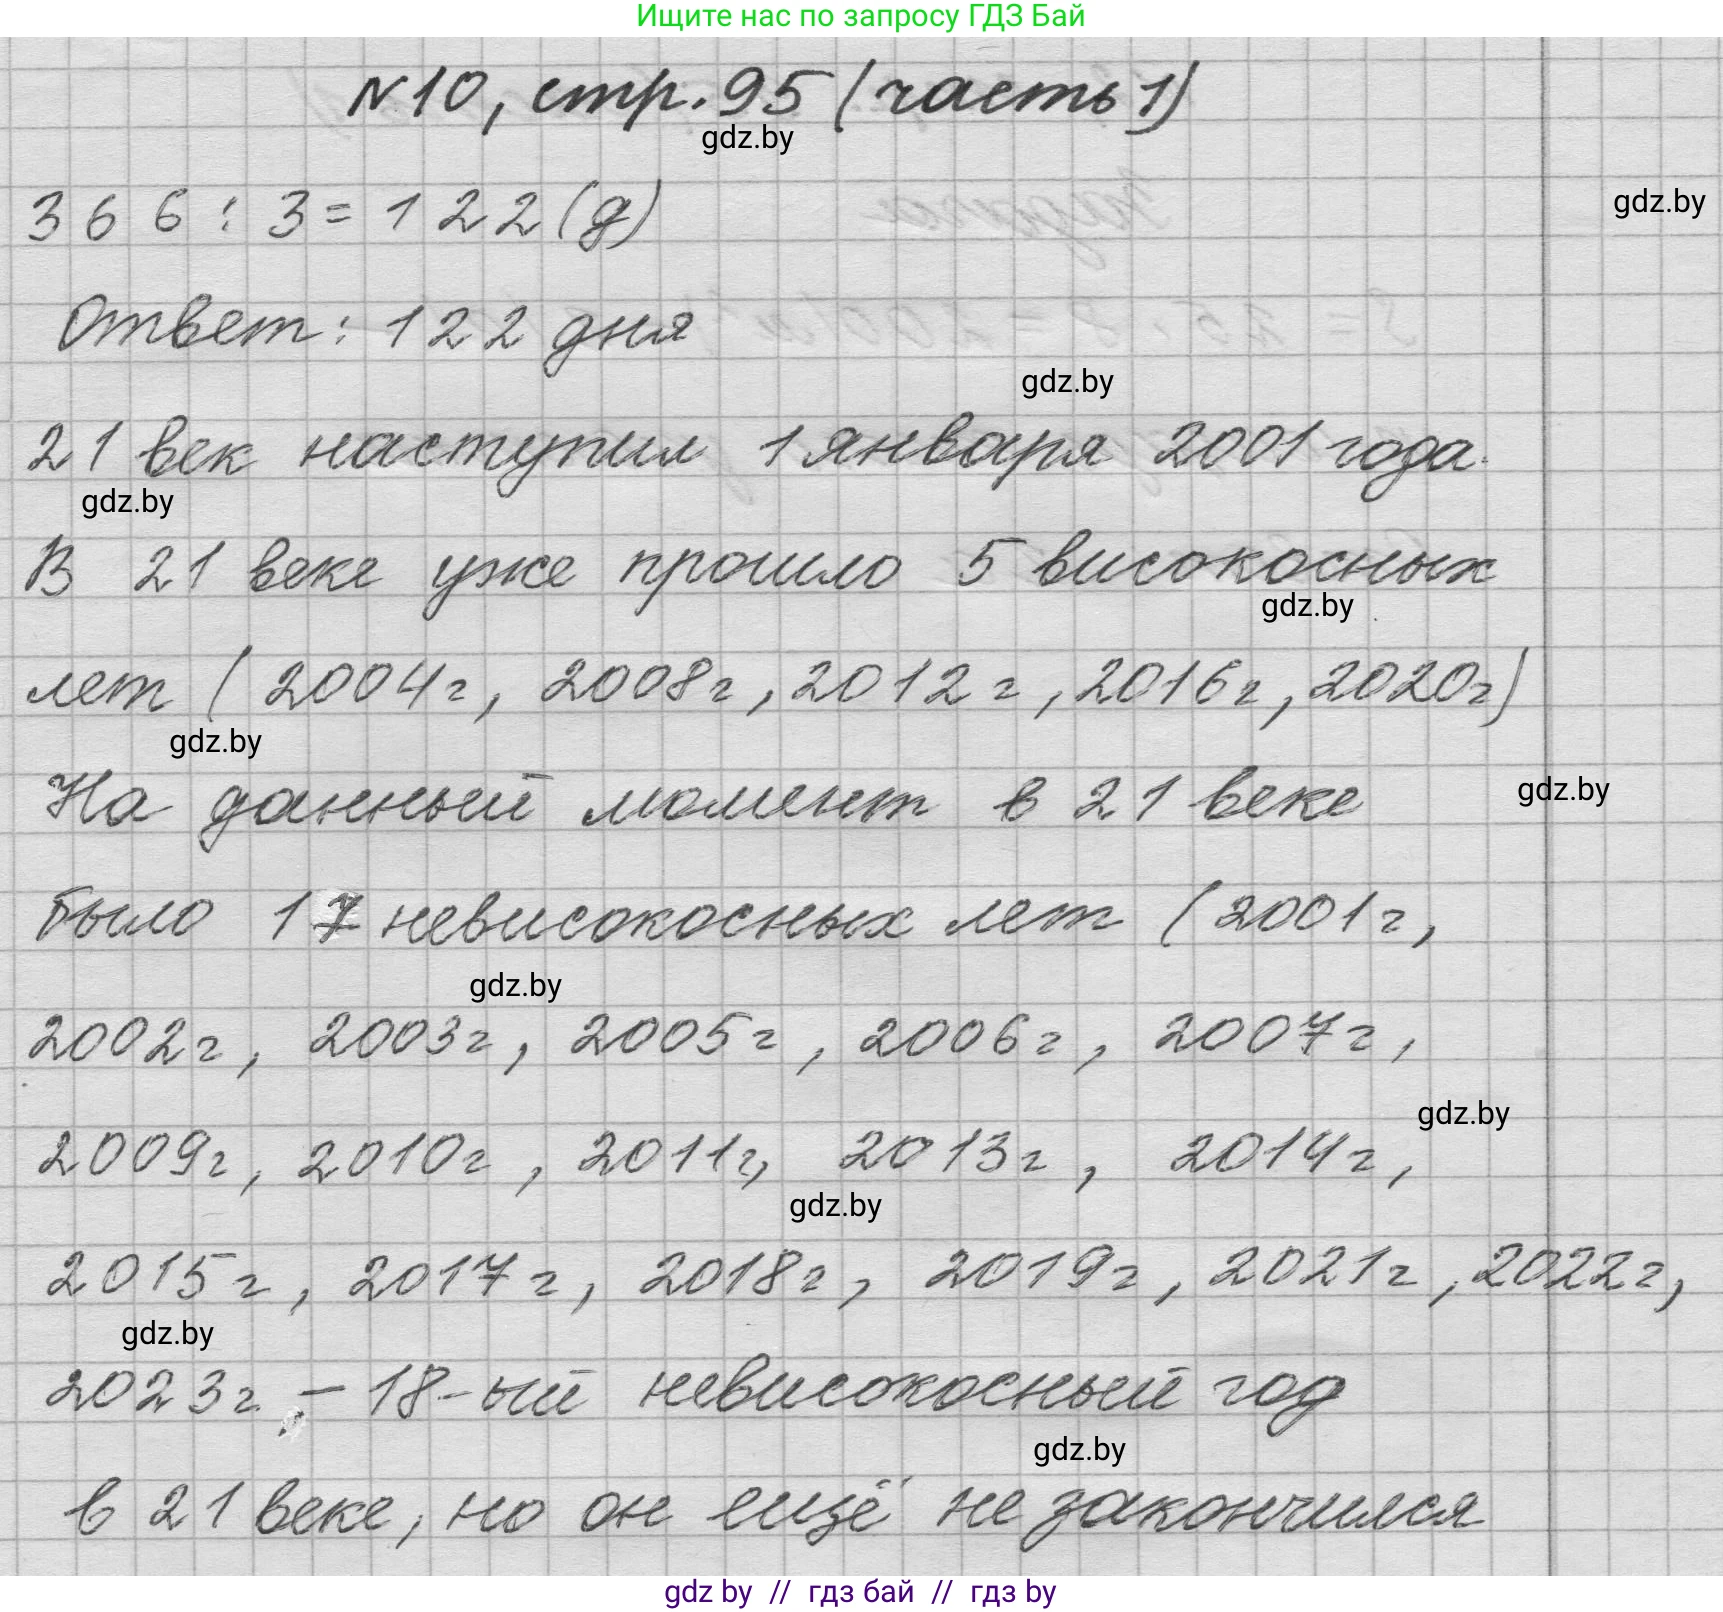 Ищите нас по запросу ГДЗ Бай
№10, стр. 95 (часть 1)
gdz.by
366 : 3 = 122 (д)
gdz.by
Ответ: 122 дня
gdz.by
21 век наступил 1 января 2001 года.
gdz.by
В 21 веке уже прошло 5 високосных
gdz.by
лет (2004г, 2008г, 2012г, 2016г, 2020г)
gdz.by
На данный момент в 21 веке
gdz.by
было 17 невисокосных лет (2001г,
gdz.by
2002г, 2003г, 2005г, 2006г, 2007г,
gdz.by
2009г, 2010г, 2011г, 2013г, 2014г,
gdz.by
2015г, 2017г, 2018г, 2019г, 2021г, 2022г,
gdz.by
2023г. – 18-ый невисокосный год
gdz.by
в 21 веке, но он ещё не закончился
gdz by // гдз бай // гдз by